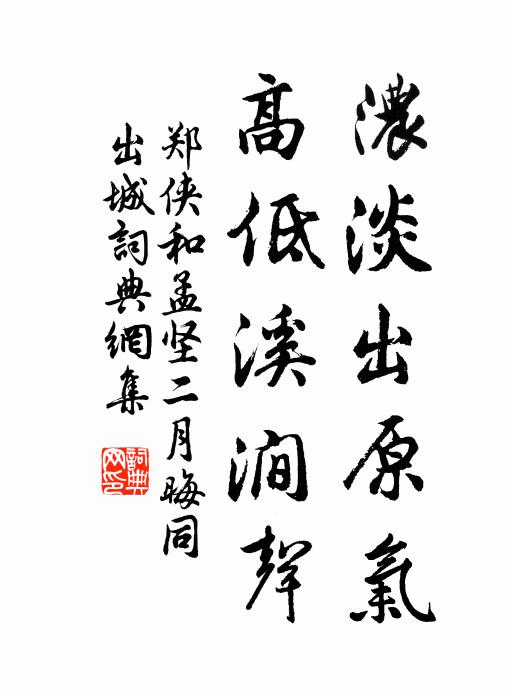 濃淡出原氣
高低溪澗聲
郑侠和孟坚二月晦同
出城詞典網集
詞典网印